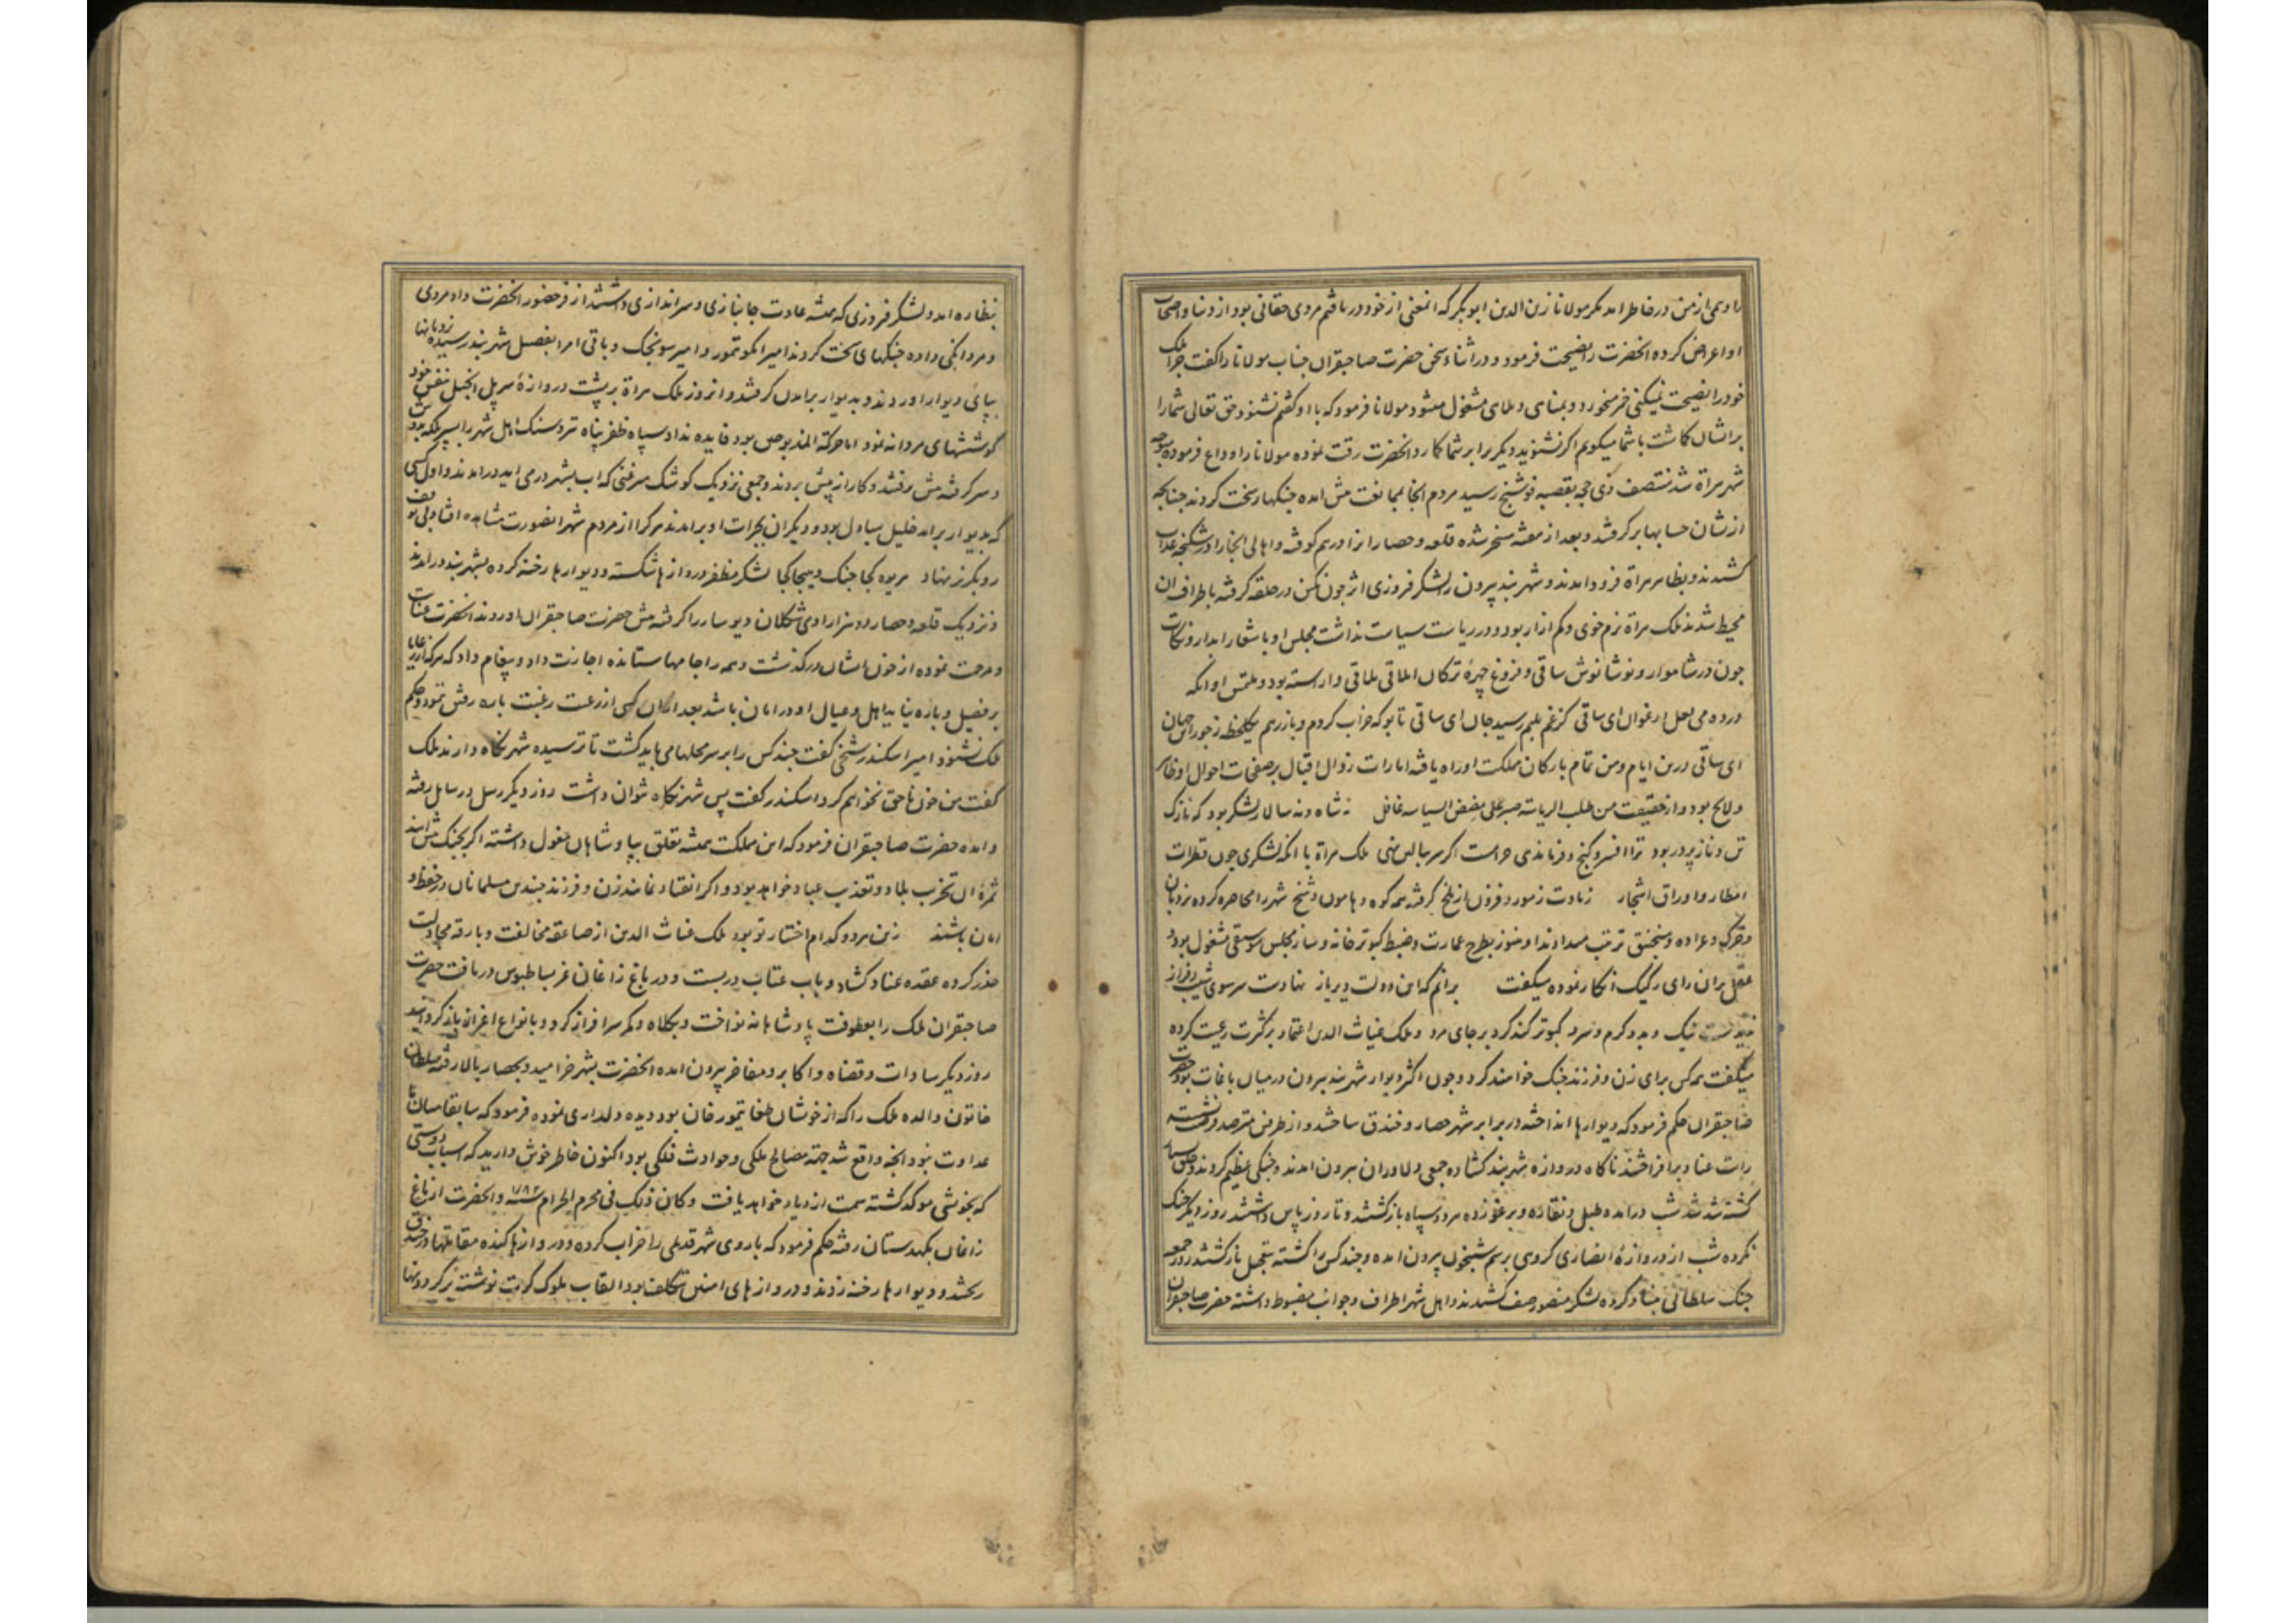 را وهمی از من در خاطر امد مکر مولانا زین الدین ابوبکر که انمعنی از خود در یافتم مردی حقانی بود از دنیا و اصحاب
او اعراض کرده انحضرت را نصیحت فرمود و در اثناء سخن حضرت صاحبقران جناب مولانا را کفت چرا ملک
خود را نصیحت نمیکنی خمر میخورد و بمناهی و ملاهی مشغول میشود مولانا فرمود که با او کفتم نشنود حق تعالی شما را
برایشان کماشت با شما میکویم اکر نشنوید دیکر برابر شما کمارد انحضرت رقت نموده مولانا را وداع فرموده متوجه
شهر هراة شد منتصف ذی حجه بقصبه فوشنج رسید مردم انجا بممانعت پیش امده جنکهاء سخت کردند چنانچه
ازیشان حسابها بر کرفتند و بعد از هفته مسخر شده قلعه و حصار انرا درهم کوفته و اهالی انجا را در شکنجه عذاب
کشیدند و بظاهر هراة فرود امدند و شهر بند بیرون را لشکر فیروزی اثر چون نکین در حلقه کرفته باطراف ان
محیط شدند ملک هراة نرم خوی و کم ازار بود و در ریاست سیاست نداشت مجلس او باشعار ابدار و نکات
چون در شاهوار و نوشانوش ساقی و فروغ چهرهٔ ترکان ایلاقی یلاقی و اراسته بود و ملتمس او انکه
در ده می لعل ارغوان ای ساقی کز غم بلبم رسید جان ای ساقی تا بو که خراب کردم و باز رهم یکلحظه ز جور این جهان
ای ساقی درین ایام وهن تمام بارکان مملکت او راه یافته امارات زوال اقبال بر صفحات احوال او ظاهر
و لایح بود و از حقیقت من طلب الریاسه صبر علی مضض السیاسه غافل نه شاه و نه سالار لشکر بود که نازک
تن و ناز پرور بود ترا افسر و کنج و فرماندهی حرامست اکر سر ببالین نهی ملک هراة با انکه لشکری چون قطرات
امطار و اوراق اشجار زیادت ز مور و فزون از ملخ کرفته همه کوه و هامون و شخ شهر را محاصره کرده نردبان
و خرک و عراده و منجنیق ترتیب میدادند او هنوز بطرح عمارت و ضبط کبوتر خانه و ساز مجلس موسیقی مشغول بود و
عقل بران رای رکیک انکار نموده میکفت برانم که این دولت دیریاز نهادست سر سوی شیب از فراز
نیک و بد و کرم و سرد کبوتر کند کرد بر جای مرد و ملک غیاث الدین اعتماد بر کثرت رعیت کرده
میکفت همه کس برای زن و فرزند جنک خواهند کرد و چون اکثر دیوار شهر بند بیرون در میان باغات بود حضرت
صاحبقران حکم فرمود که دیوارها انداخته در برابر شهر حصار و خندق ساختند و از طرفین مترصد فرصت نشسته
رایت عناد بر افراختند ناکاه دروازه شهر بند کشاده جمعی دلاوران بیرون امدند و جنکی عظیم کردند و خلق بسیار
کشته شدند شب درامده طبل و نقاره و برغو زده هر دو سپاه باز کشتند و تا روز پاس داشتند روز دیکر جنک
نکرده شب از دروازهٔ انصاری کروهی برسم شبیخون بیرون امده و چند کس را کشته بتعجیل باز کشتند روز جمعه
جنک سلطانی بنیاد کرده لشکر منصور صف کشیدند و اهل شهر اطراف و جوانب مضبوط داشته حضرت صاحبقران
بنظاره امد و لشکر فیروزی که همیشه عادت جانبازی و سراندازی داشتند از فر حضور انحضرت داد مردی
و مردانکی داده جنکهای سخت کردند امیر ایکو تمور و امیر سونجک و باقی امرا بفصیل شهر بند رسیده نردبانها
بپای دیوار اوردند و بدیوار برامدن کرفتند و انروز ملک هراة بر پشت دروازهٔ سر پل انجیل بنفس خود
کوششهای مردانه نمود اما حرکة المذبوحین بود فایده نداد سپاه ظفر پناه تیر و سنک اهل شهر را سپر ملکه
در سر کرفته پیش رفتند و کار از پیش بردند و جمعی نزدیک کوشک مرغنی که اب بشهر در می اید درامدند و اول کسی
که بدیوار برامد خلیل یساول بود و دیکران بجرات او برامدند هر کرا از مردم شهر انصورت مشاهده افتاد بی توقف
رو بکریز نهاد بربوه کجا جنک و هیجا کجا لشکر مظفر دروازها شکسته و دیوارها رخنه کرده بشهر بند درامدند
و نزدیک قلعه و حصار دو هزار ادمی شکلان دیوسار را کرفته پیش حضرت صاحبقران اوردند انحضرت عنایت
و مرحمت نموده از خون ایشان در کذشت و همه را جامها ستانده اجازت داد و پیغام داد که هر که از رعایا
بر فصیل و باره نیاید اهل و عیال او در امان باشد بعد ازان کسی از رعیت رغبت باره رفتن ننمود و حکم
ملک نشنود امیر اسکندر شیخی کفت چند کس را بر سر محلها می باید کشت تا ترسیده شهر نکاه دارند ملک
کفت من خون ناحق نخواهم کرد اسکندر کفت پس شهر نکاه نتوان داشت روز دیکر رسل و رسایل رفته
و امده حضرت صاحبقران فرمود که این مملکت همیشه تعلق بپادشاهان مغول داشته اکر بجنک پیش ایند
ثمرهٔ ان تخریب بلاد و تعذیب عباد خواهد بود و اکر انقیاد نمایند زن و فرزند چندین مسلمانان در حفظ و
امان باشند زین هر دو کدام اختیار تو بود ملک غیاث الدین از صاعقه مخالفت و بارقه مجادلت
حذر کرده عقده عناد کشاد و باب عتاب در بست و در باغ زاغان عز بساطبوس دریافت حضرت
صاحبقران ملک را بعطوفت پادشاهانه نواخت و بکلاه و کمر سرافراز کرد و بانواع اعزاز باز کردانید
روز دیکر سادات و قضاه و اکابر و مفاخر بیرون امده انحضرت بشهر خرامید و بحصار بالا رفته سلطان
خاتون والده ملک را که از خویشان طغا تیمور خان بود دیده دلداری نموده فرمود که سابقا میان ما
عداوت نبود انچه واقع شد جهته مصالح ملکی و حوادث فلکی بود اکنون خاطر خوش دارید که اسباب دوستی
که بخویشی موکد کشته سمت ازدیاد خواهد یافت و کان ذلک فی محرم الحرام سنه ۷۸۳ و انحضرت از باغ
زاغان بکهدستان رفته حکم فرمود که باروی شهر قدیمی را خراب کرده و دروازها کنده مقابلها در خندق
ریختند و دیوارها رخنه زدند و دروازهای اهنین بتکلف بود القاب ملوک کرت نوشته بر کردونها